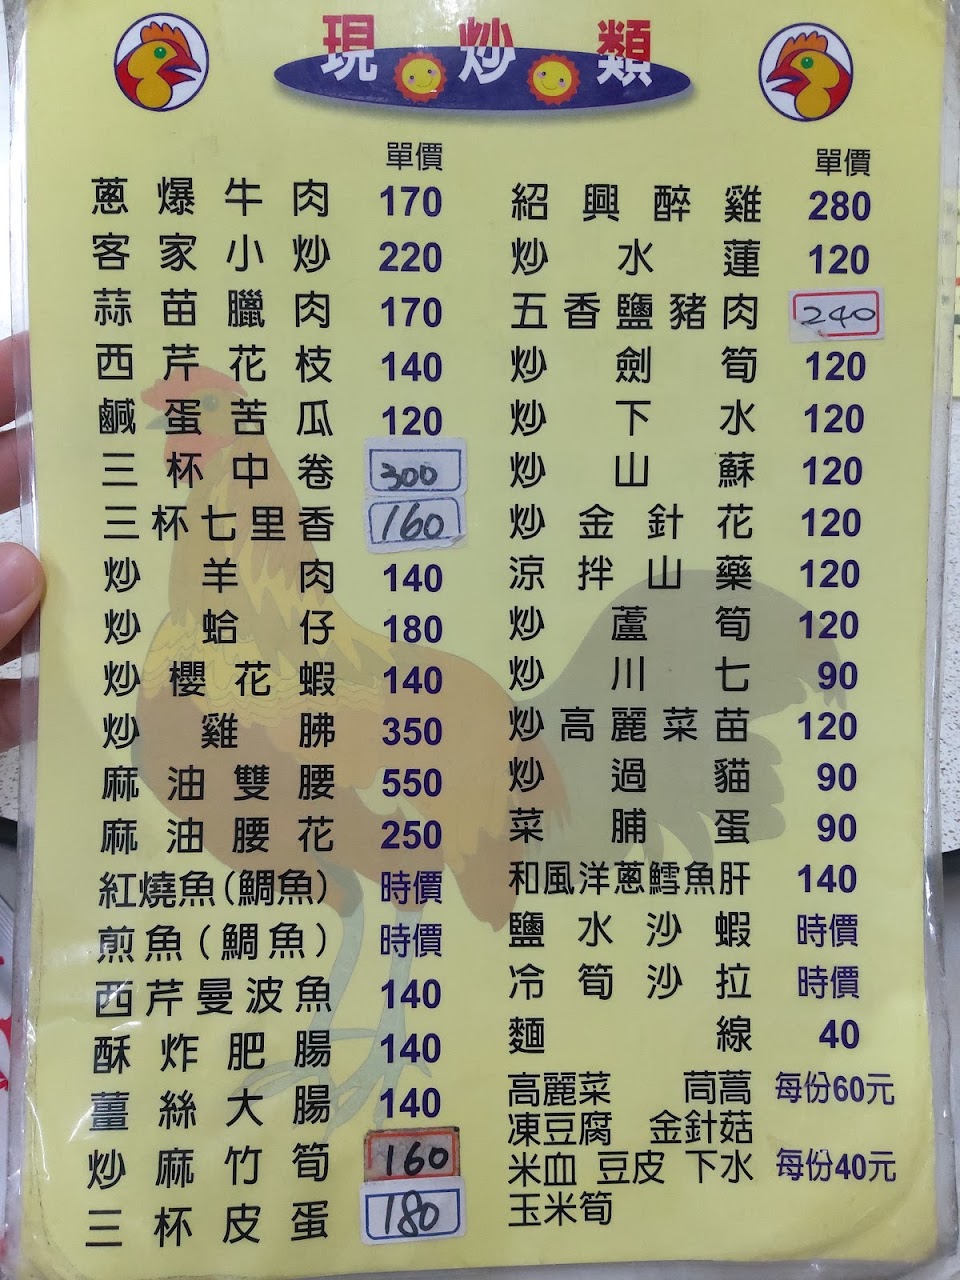 現炒類
單價
蔥爆牛肉 170
客家小炒 220
蒜苗臘肉 170
西芹花枝 140
鹹蛋苦瓜 120
三杯中卷 300
三杯七里香 160
炒羊肉 140
炒蛤仔 180
炒櫻花蝦 140
炒雞胇 350
麻油雙腰 550
麻油腰花 250
紅燒魚(鯛魚) 時價
煎魚(鯛魚) 時價
西芹曼波魚 140
酥炸肥腸 140
薑絲大腸 140
炒麻竹筍 160
三杯皮蛋 180
單價
紹興醉雞 280
炒水蓮 120
五香鹽豬肉 240
炒劍筍 120
炒下水 120
炒山蘇 120
炒金針花 120
涼拌山藥 120
炒蘆筍 120
炒川七 90
炒高麗菜苗 120
炒過貓 90
菜脯蛋 90
和風洋蔥鱈魚肝 140
鹽水沙蝦 時價
冷筍沙拉 時價
麵線 40
高麗菜 茼蒿 每份60元
凍豆腐 金針菇
米血 豆皮 下水 每份40元
玉米筍